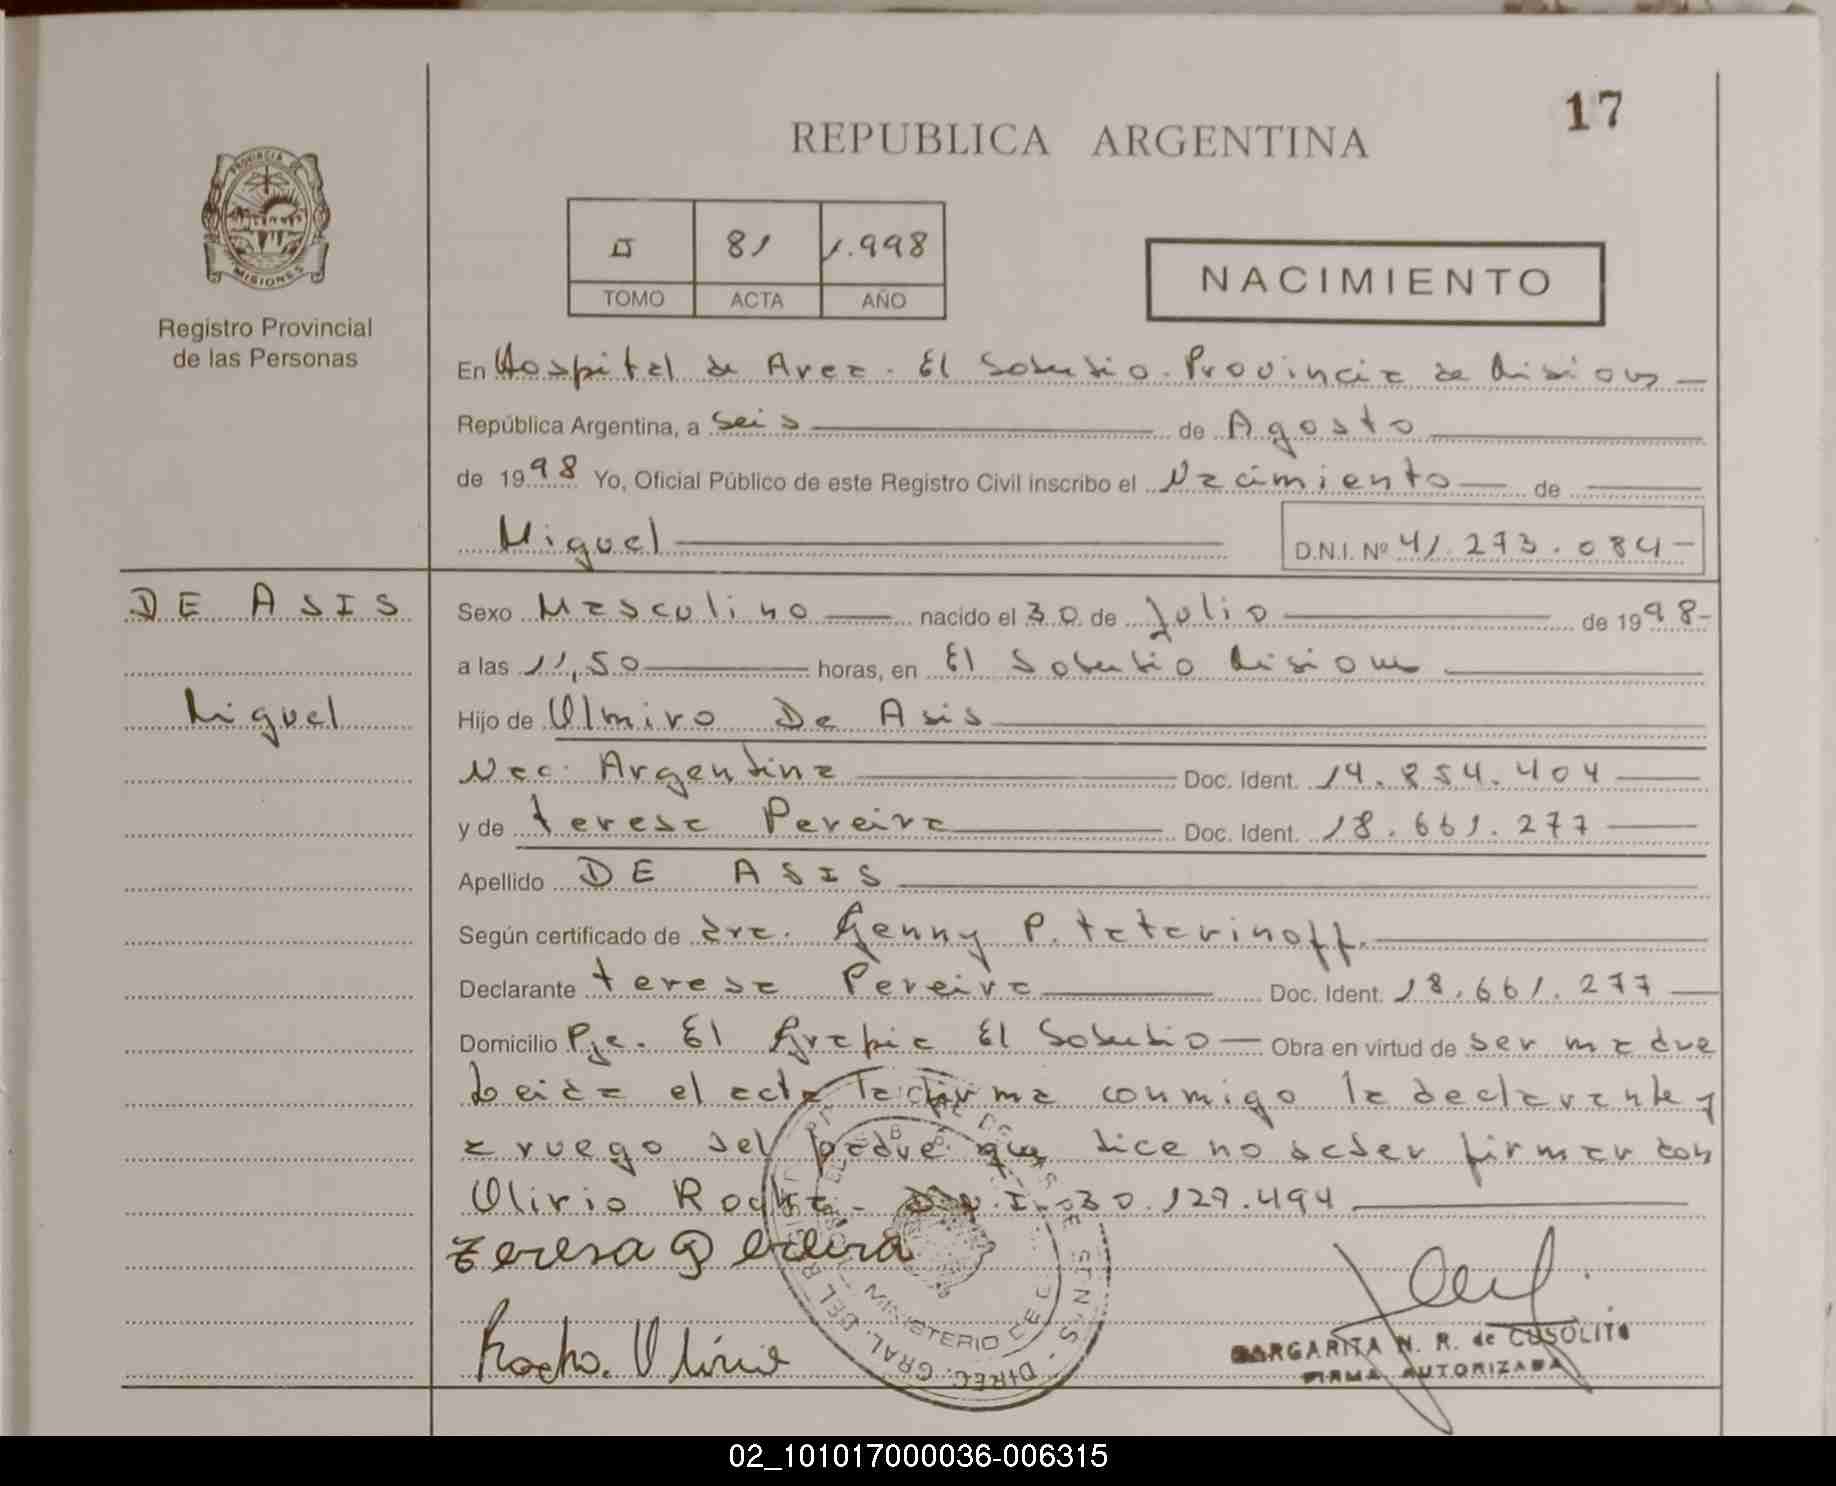 17
REPUBLICA ARGENTINA
PROVINCIA DE
MISIONES
Registro Provincial
de las Personas
II 81 1.998
TOMO ACTA AÑO
NACIMIENTO
En Hospital de Area. El Soberbio. Provincia de Misiones
República Argentina, a Seis de Agosto
de 1998 Yo, Oficial Público de este Registro Civil inscribo el Nacimiento de
Miguel D.N.I. Nº 41.273.084
DE ASIS
Miguel
Sexo Masculino nacido el 30 de Julio de 1998
a las 11,50 horas, en El Soberbio Misiones
Hijo de Olmiro De Asis
Nac. Argentina Doc. Ident. 14.854.404
y de teresa Pereira Doc. Ident. 18.661.277
Apellido DE ASIS
Según certificado de dra. Genny P. tatarinoff.
Declarante teresa Pereira Doc. Ident. 18.661.277
Domicilio Pje. El Grapia El Soberbio Obra en virtud de ser madre
Leida el acta la firma conmigo la declarante y
a ruego del padre que dice no saber firmar con
Olirio Rocha. D.N.I. 30.129.494
Teresa Pereira
Rocho. Olirio
DIREC. GRAL. DEL
MINISTERIO DE
MARGARITA N. R. de CUSOLITO
FIRMA AUTORIZADA
02_101017000036-006315